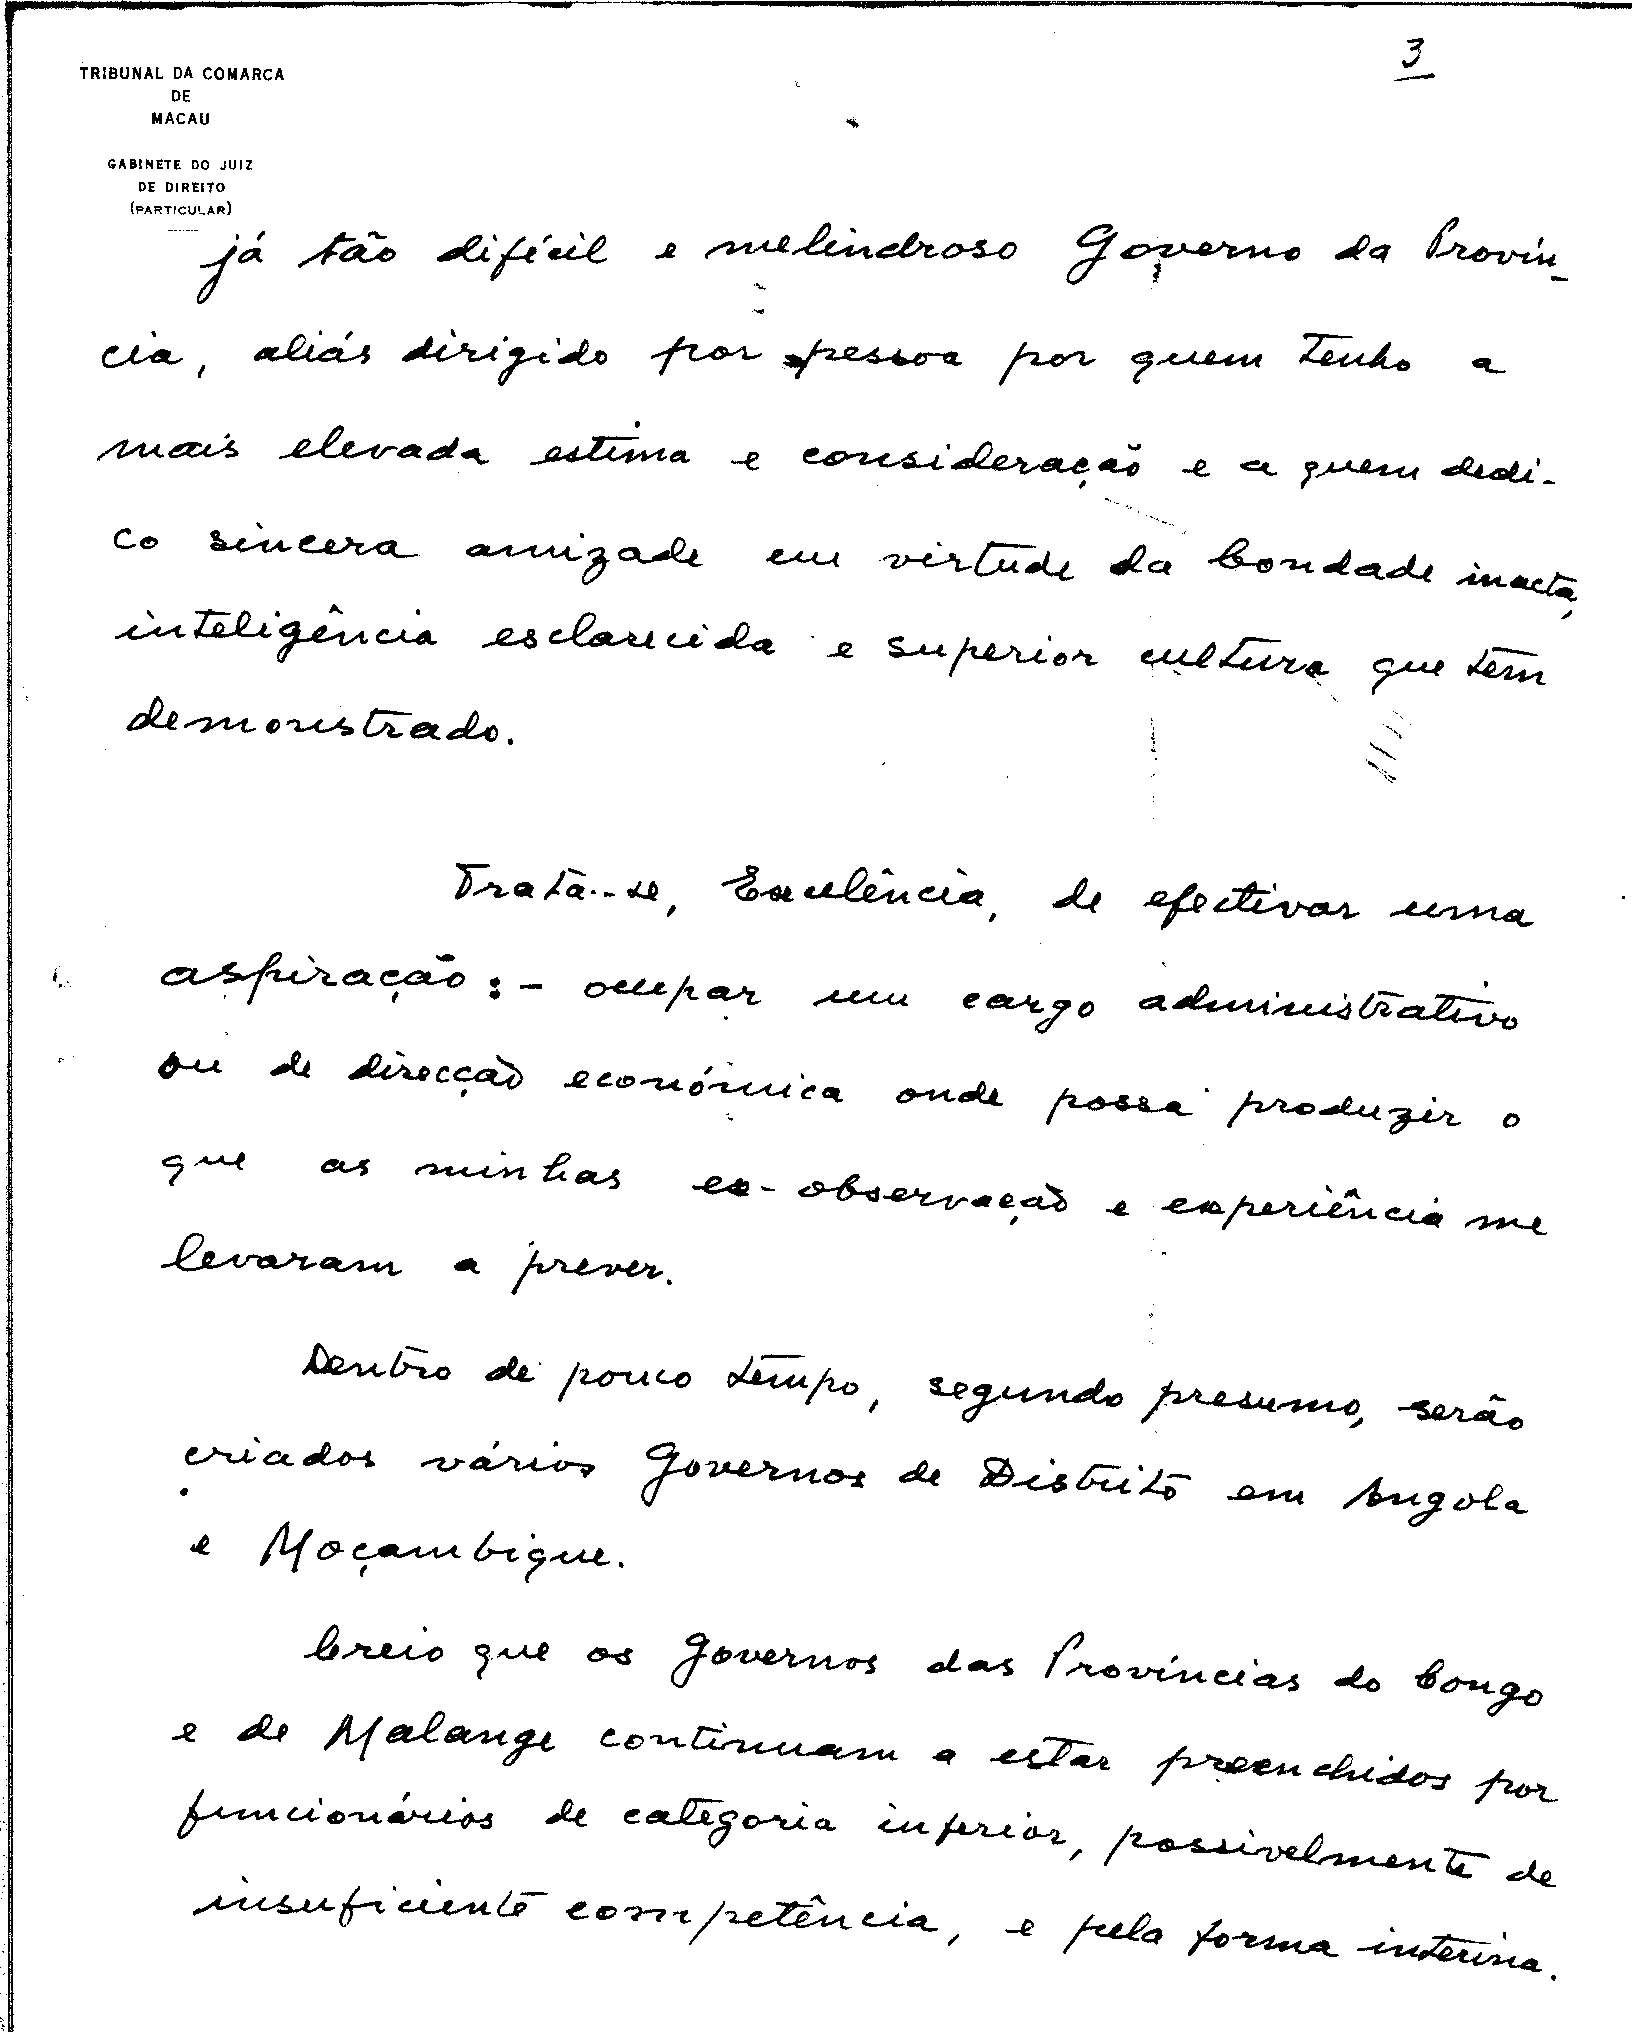 3
TRIBUNAL DA COMARCA
DE
MACAU
GABINETE DO JUIZ
DE DIREITO
(PARTICULAR)
já tão difícil e melindroso Governo da Provín-
cia, aliás dirigido por pessoa por quem tenho a
mais elevada estima e consideração e a quem dedi-
co sincera amizade em virtude da bondade inacta,
inteligência esclarecida e superior cultura que tem
demonstrado.
Trata-se, Excelência, de efectivar uma
aspiração:- ocupar um cargo administrativo
ou de direcção económica onde possa produzir o
que as minhas ex-observação e experiência me
levaram a prever.
Dentro de pouco tempo, segundo presumo, serão
criados vários Governos de Distrito em Angola
e Moçambique.
Creio que os Governos das Províncias do Congo
e de Malange continuam a estar preenchidos por
funcionários de categoria inferior, possivelmente de
insuficiente competência, e pela forma interina.